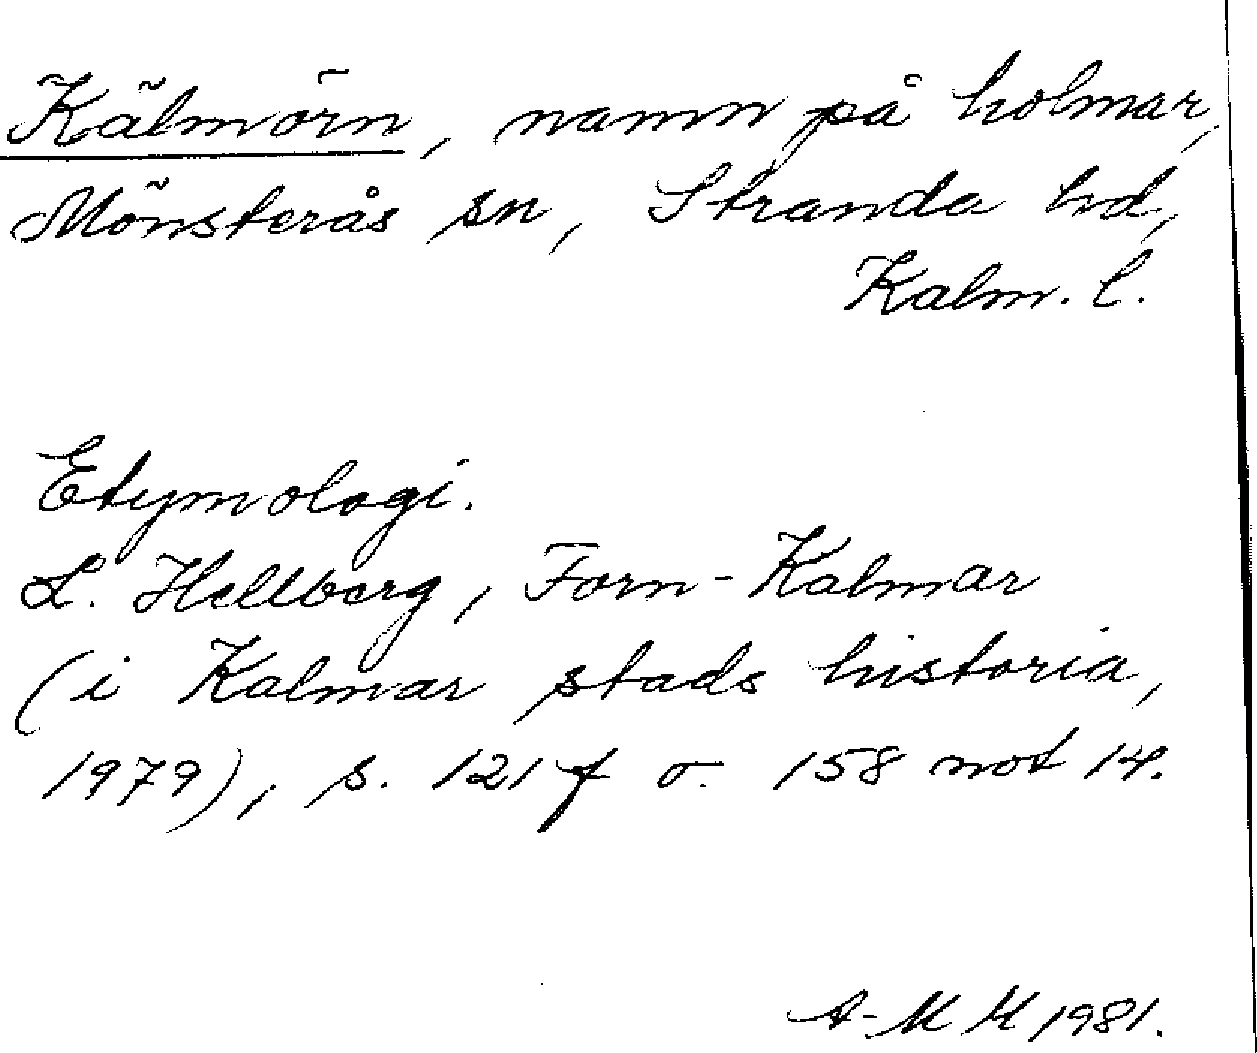 Kälmörn, namn på holmar,
Mönsterås sn, Stranda hd,
Kalm. l.
Etymologi.
L. Hellberg, Forn-Kalmar
(i Kalmar stads historia,
1979), s. 121 f o. 158 not 14.
A-M H 1981.